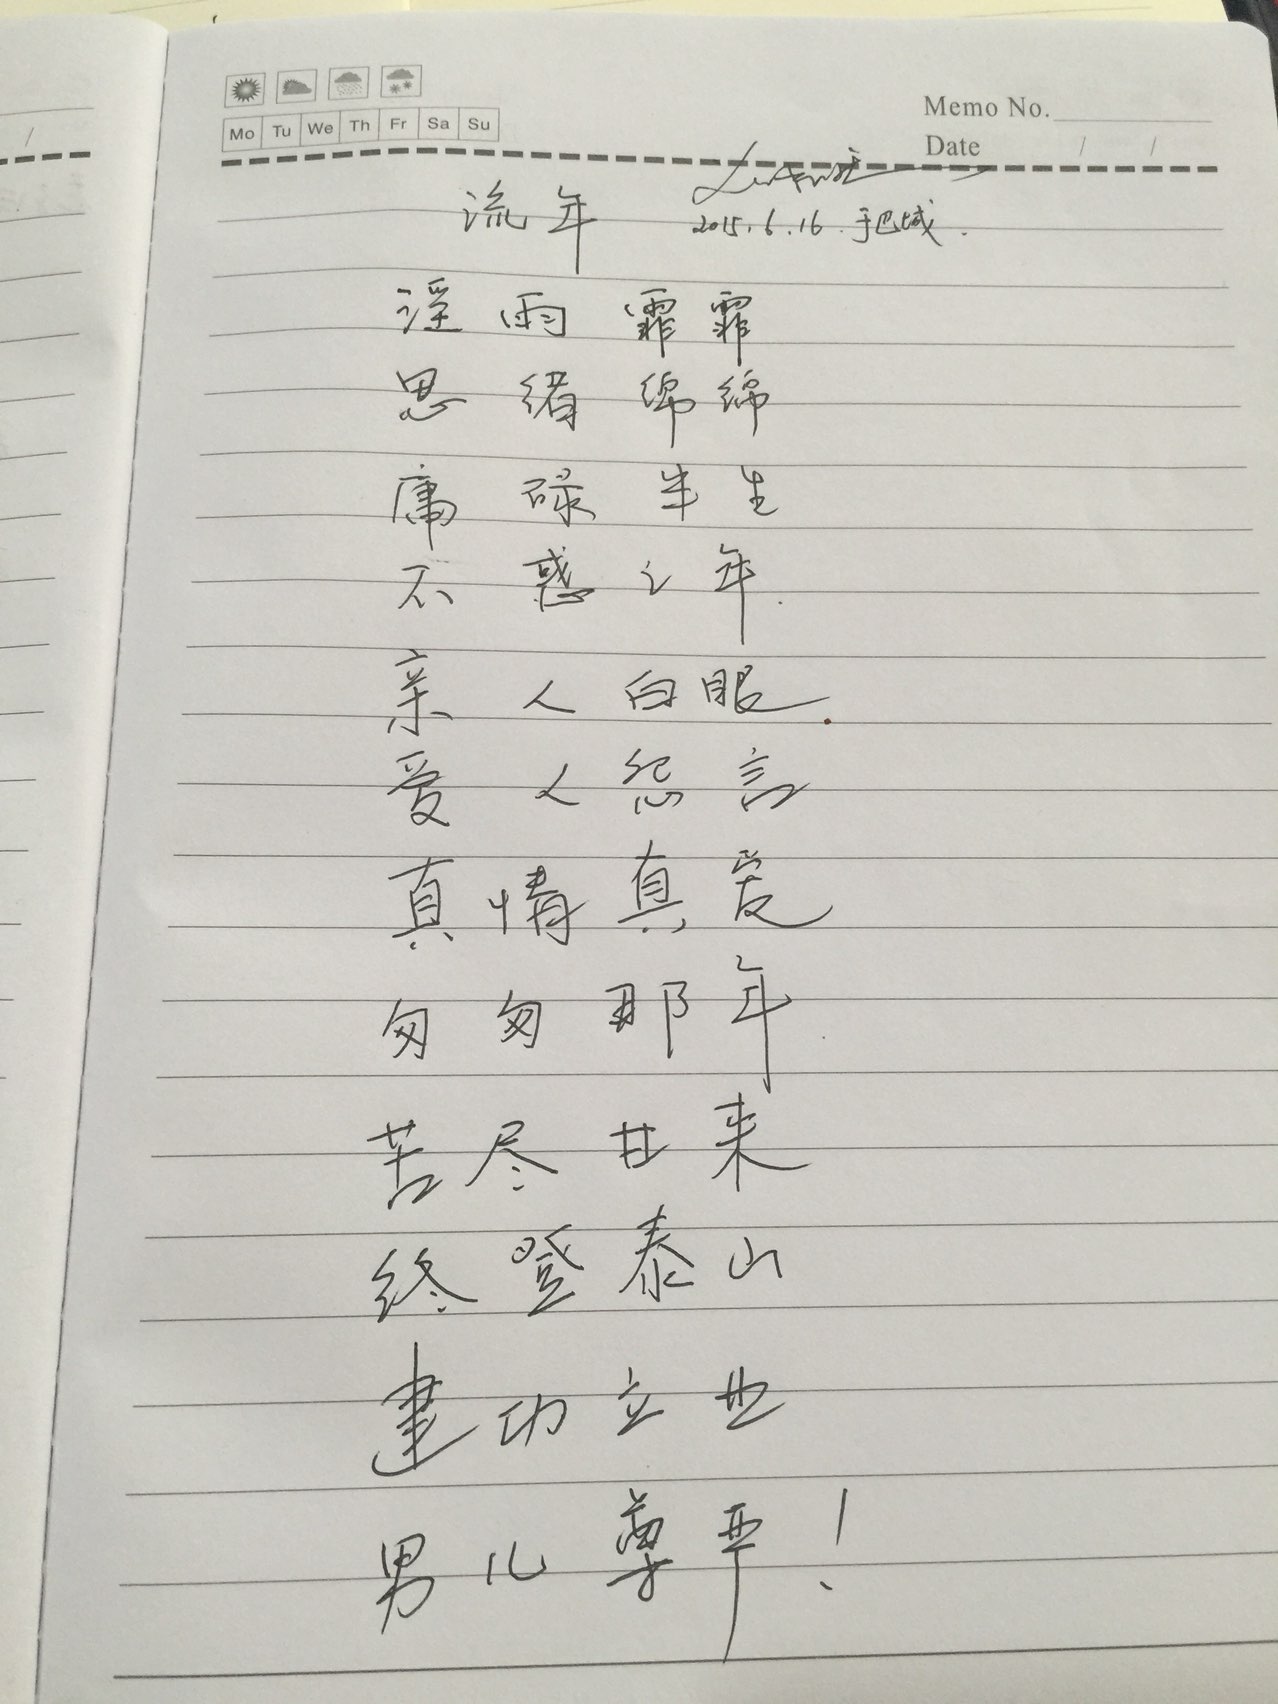 Memo No.
Mo Tu We Th Fr Sa Su
Date / /
流年
2015.6.16.于巴城.
淫雨霏霏
思绪绵绵
庸碌半生
不惑之年.
亲人白眼.
爱人怨言
真情真爱
匆匆那年
苦尽甘来
终登泰山
建功立业
男儿尊严!